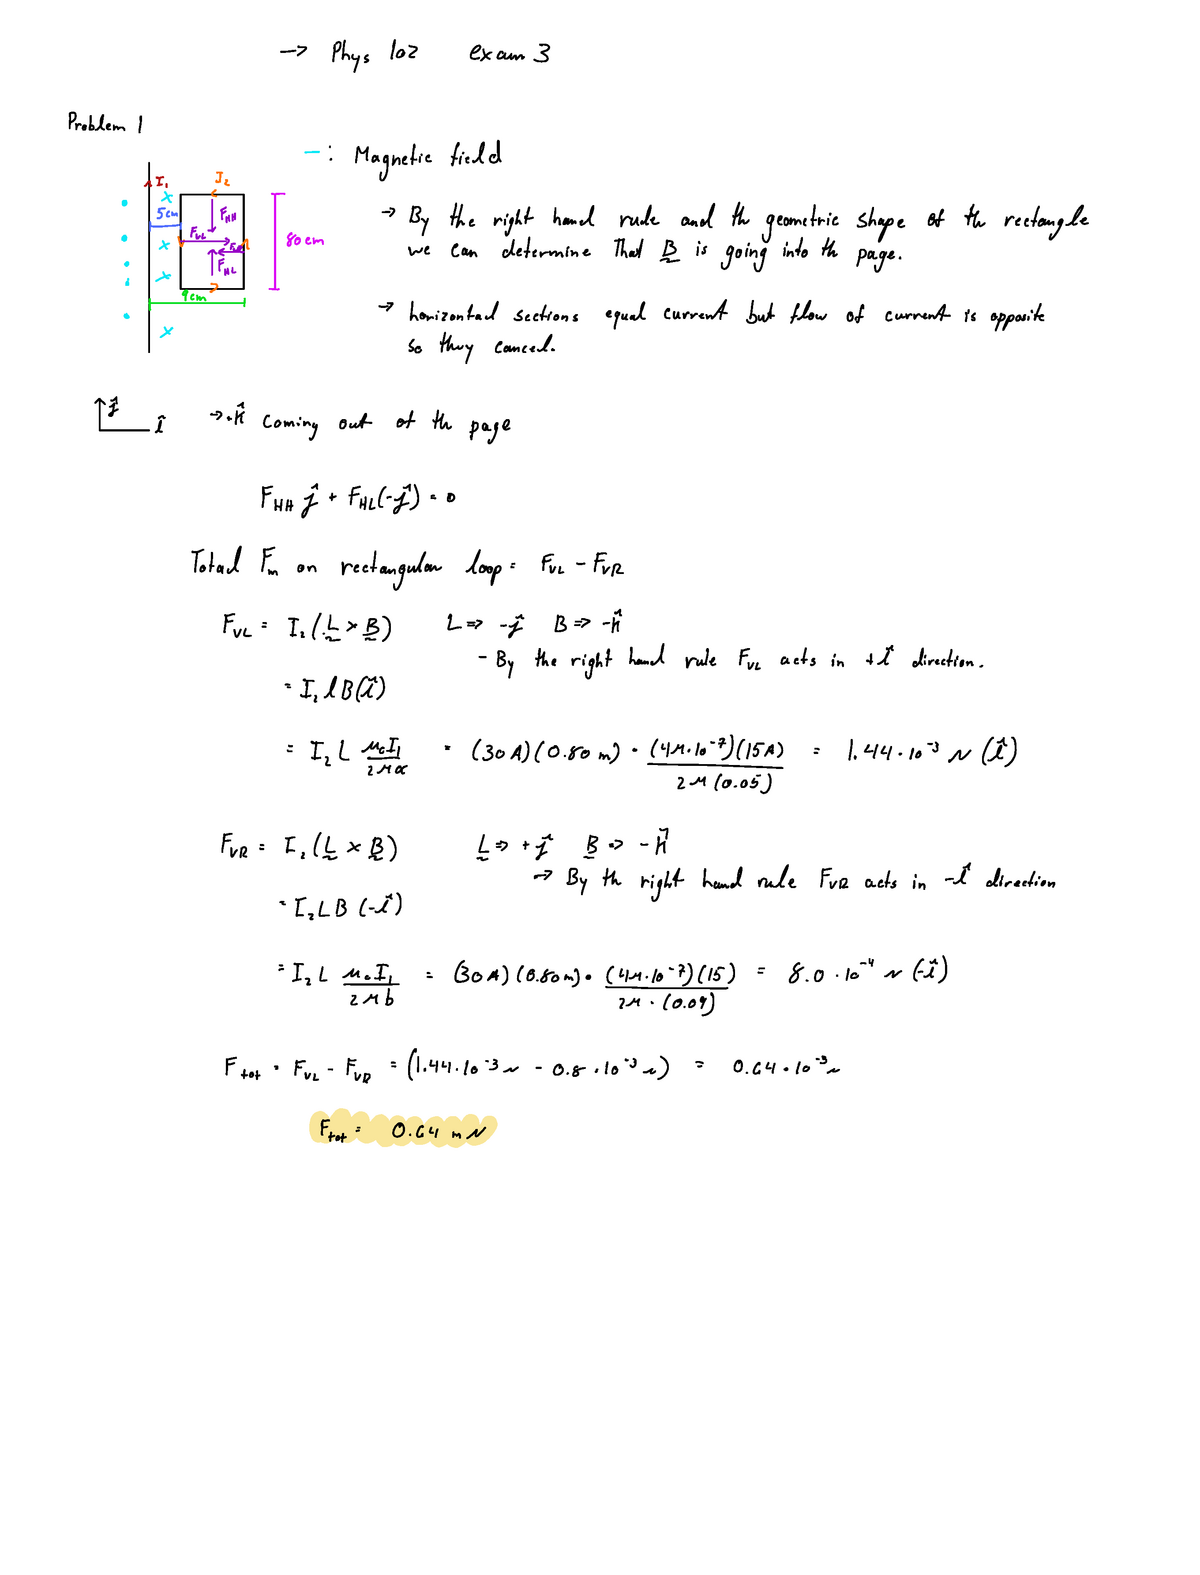 → Phys 102 exam 3
Problem 1
I₁
J₂
5cm
F_HH
F_VL
F_HL
80 cm
9cm
-: Magnetic field
→ By the right hand rude and th geometric shape of th rectangle
we can determine That B is going into th page.
→ horizontad sections equal current but flow of current is opposite
so thuy canced.
ĵ
î
→ +k̂ Coming out of th page
F_HH ĵ + F_HL(-ĵ) = 0
Totad F_m on rectangular loop = F_VL - F_VR
F_VL = I₂(L × B) L ⇒ -ĵ B ⇒ -k̂
- By the right hand rule F_VL acts in +î direction.
= I₂ l B(î)
= I₂ L μ₀I₁/2πa = (30 A)(0.80 m) · (4π·10⁻⁷)(15A)/2π(0.05) = 1.44·10⁻³ N (î)
F_VR = I₂(L × B) L ⇒ +ĵ B ⇒ -k̂
→ By th right hand rule F_VR acts in -î direction
= I₂LB (-î)
= I₂ L μ₀I₁/2πb = (30A)(0.80m)· (4π·10⁻⁷)(15)/2π·(0.09) = 8.0·10⁻⁴ N (-î)
F_tot = F_VL - F_VR = (1.44·10⁻³ N - 0.8·10⁻³ N) = 0.64·10⁻³ N
F_tot = 0.64 mN